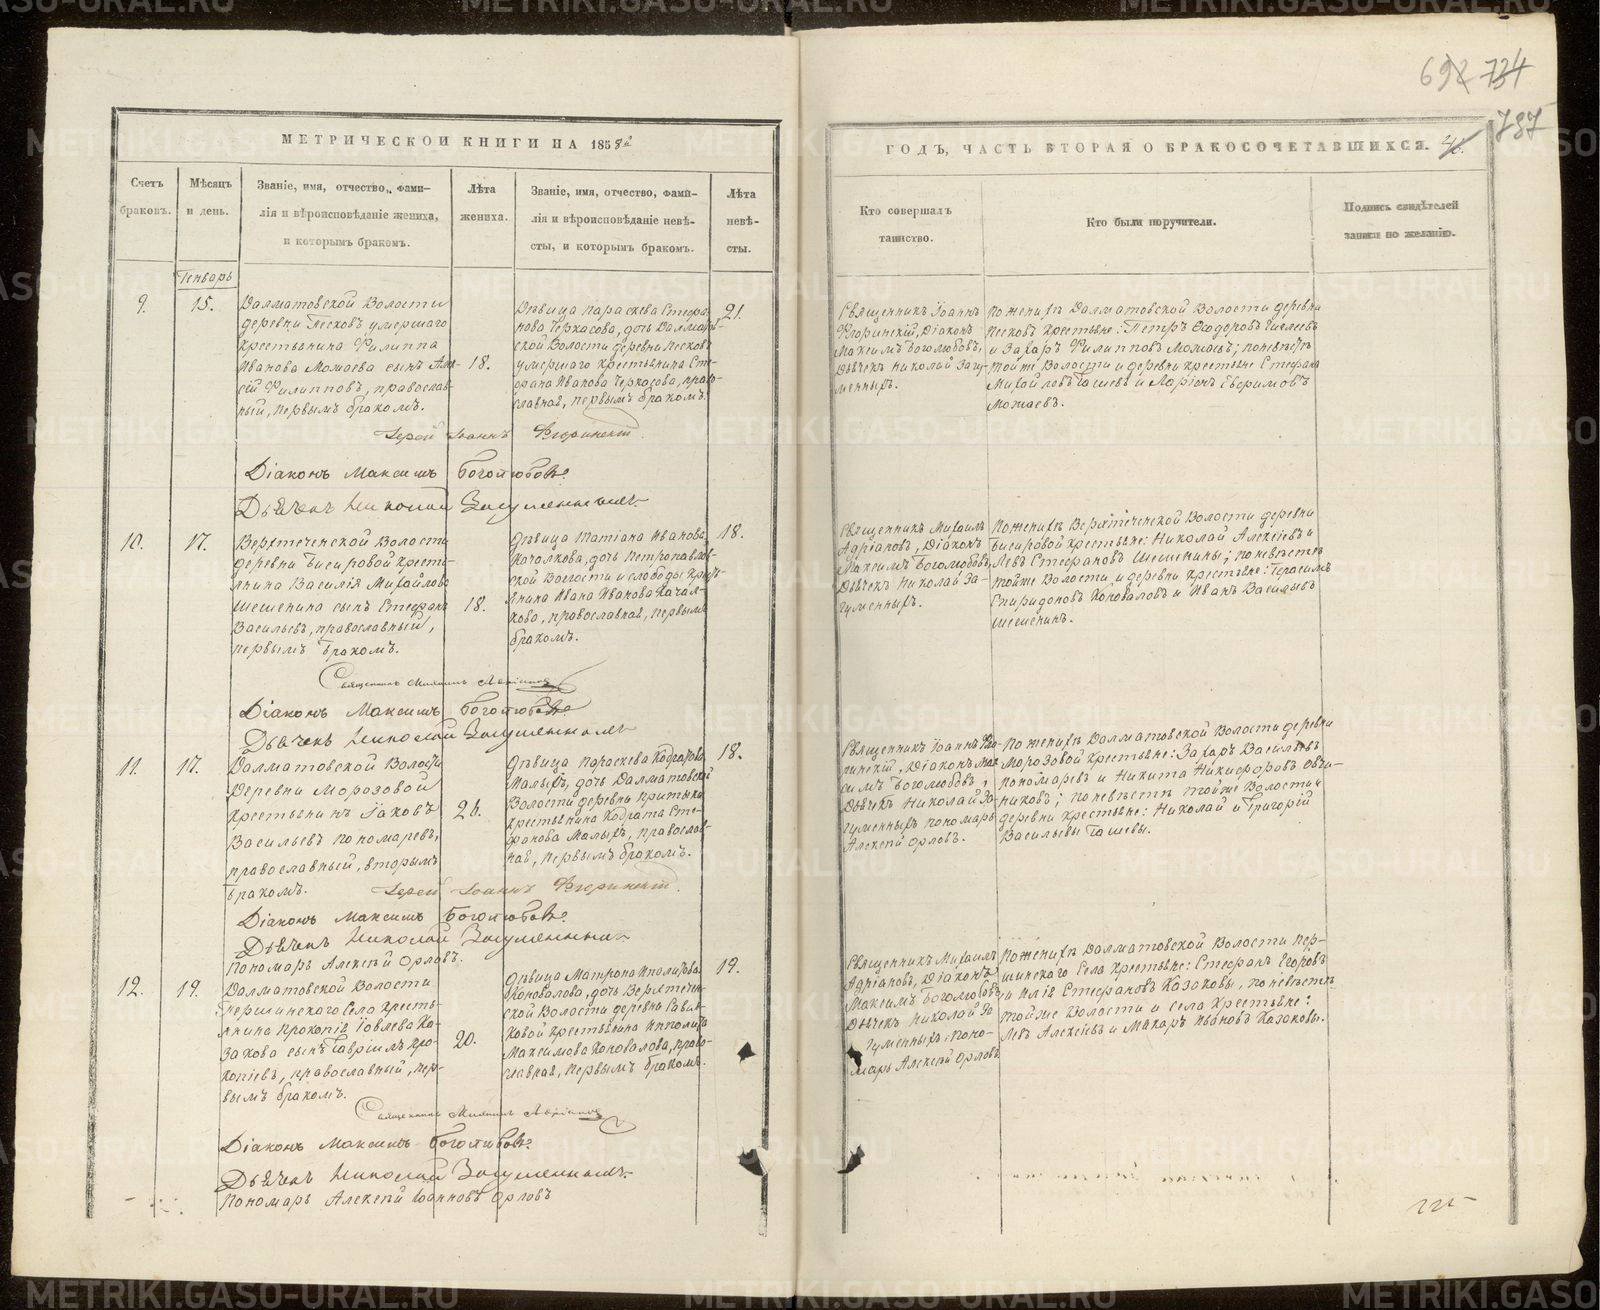 692 734
787
МЕТРИЧЕСКОЙ КНИГИ НА 1858й
ГОДЪ, ЧАСТЬ ВТОРАЯ О БРАКОСОЧЕТАВШИХСЯ.
Счетъ браковъ.
Мѣсяцъ и день.
Званіе, имя, отчество, фами-
лія и вѣроисповѣданіе жениха,
и которымъ бракомъ.
Лѣта жениха.
Званіе, имя, отчество, фами-
лія и вѣроисповѣданіе невѣ-
сты, и которымъ бракомъ.
Лѣта невѣ-
сты.
Кто совершалъ
таинство.
Кто были поручители.
Подпись свидѣтелей
записи по желанію.
Генварь
9.
15.
Далматовской Волости
деревни Песковъ умершаго
крестьянина Филиппа
Иванова Можаева сынъ Алек-
сій Филипповъ, православ-
ный, первымъ бракомъ.
18.
Дѣвица Параскева Стефа-
нова Черкасова, дочь Далматов-
ской Волости деревни Песковъ
умершаго крестьянина Сте-
фана Иванова Черкасова, право-
славная, первымъ бракомъ.
21.
Священникъ Іоаннъ
Флоринскій, Діаконъ
Максимъ Боголюбовъ,
Дьячекъ Николай Загу-
менныхъ.
По женихѣ Далматовской Волости деревни
Песковъ крестьяне: Петръ Ѳеодоровъ
и Захаръ Филипповъ Можаевъ; по невѣстѣ
тойже Волости и деревни крестьяне Стефанъ
Михайловъ Ташевъ и Ларіонъ Евфимовъ
Можаевъ.
Іерей Іоаннъ Флоринскій.
Діаконъ Максимъ Боголюбовъ.
Дьячекъ Николай Загуменныхъ.
10.
17.
Верхтеченской Волости
деревни Бисеровой крестья-
нина Василія Михайлова
Шешенина сынъ Стефанъ
Васильевъ, православный,
первымъ бракомъ.
18.
Дѣвица Татіана Иванова
Качалкова, дочь Петропавлов-
ской Волости и слободы кресть-
янина Ивана Иванова Качал-
кова, православная, первымъ
бракомъ.
18.
Священникъ Михаилъ
Адріановъ, Діаконъ
Максимъ Боголюбовъ,
Дьячекъ Николай За-
гуменныхъ.
По женихѣ Верхтеченской Волости деревни
Бисеровой крестьяне: Николай Алексіевъ и
Левъ Стефановъ Шешенины; по невѣстѣ
тойже Волости и деревни крестьяне: Герасимъ
Спиридоновъ Коноваловъ и Иванъ Васильевъ
Шешенинъ.
Священникъ Михаилъ Адріановъ
Діаконъ Максимъ Боголюбовъ.
Дьячекъ Николай Загуменныхъ
11.
17.
Далматовской Волости
Деревни Морозовой
крестьянинъ Іаковъ
Васильевъ Пономаревъ,
православный, вторымъ
бракомъ.
26.
Дѣвица Параскева Кодратова
Малыхъ, дочь Далматовской
Волости деревни Притыки
крестьянина Кодрата Сте-
фанова Малыхъ, православ-
ная, первымъ бракомъ.
18.
Священникъ Іоаннъ Фло-
ринскій, Діаконъ Мак-
симъ Боголюбовъ,
Дьячекъ Николай За-
гуменныхъ пономарь
Алексій Орловъ.
По женихѣ Далматовской Волости деревни
Морозовой крестьяне: Захаръ Васильевъ
Пономаревъ и Никита Никифоровъ Овчи-
никовъ; по невѣстѣ тойже Волости и
деревни крестьяне: Николай и Григорій
Васильевы Ташевы.
Іерей Іоаннъ Флоринскій.
Діаконъ Максимъ Боголюбовъ.
Дьячекъ Николай Загуменныхъ
Пономарь Алексѣй Орловъ.
12.
19.
Далматовской Волости
Першинскаго Села кресть-
янина Прокопія Іовлева Ка-
закова сынъ Гавріилъ Про-
копіевъ, православный, пер-
вымъ бракомъ.
20.
Дѣвица Матрона Иполитова
Коновалова, дочь Верхтечен-
ской Волости деревни Савин-
ковой крестьянина Ипполита
Максимова Коновалова, право-
славная, первымъ бракомъ.
19.
Священникъ Михаилъ
Адріановъ, Діаконъ
Максимъ Боголюбовъ,
Дьячекъ Николай За-
гуменныхъ, Поно-
марь Алексѣй Орловъ
По женихѣ Далматовской Волости Пер-
шинскаго Села крестьяне: Стефанъ Егоровъ
и Илія Стефановъ Казаковы, по невѣстѣ
тойже Волости и села крестьяне:
Левъ Алексіевъ и Макаръ Ивановъ Казаковы.
Священникъ Михаилъ Адріановъ
Діаконъ Максимъ Боголюбовъ.
Дьячекъ Николай Загуменныхъ.
Пономарь Алексѣй Іоанновъ Орловъ